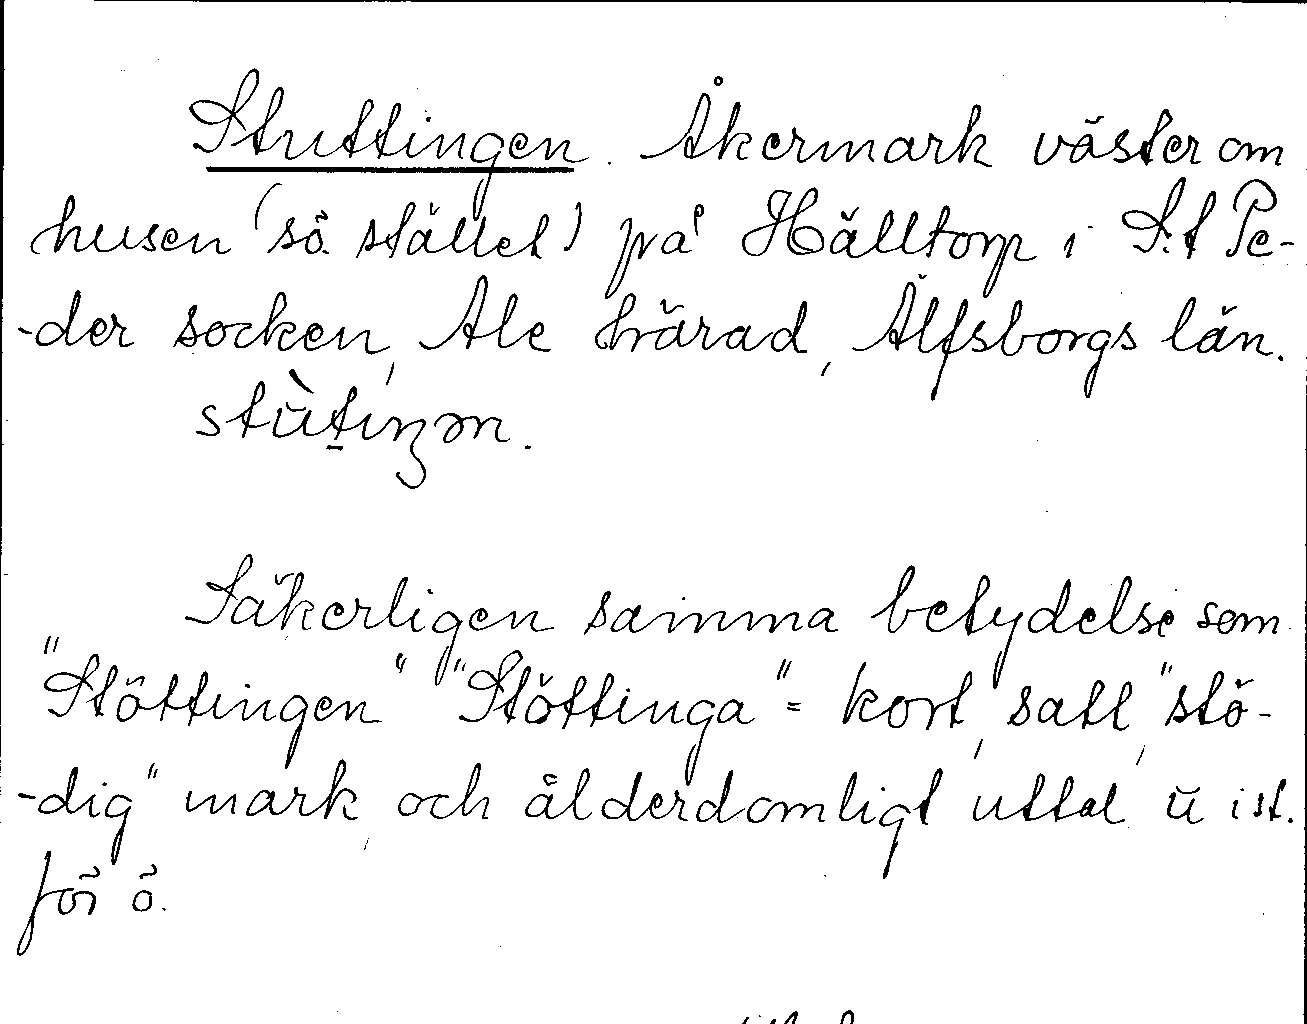 Stuttingen. Åkermark väster om
husen (sö. stället) på Hälltorp i S:t Pe-
-der socken, Ale härad, Älfsborgs län.
stùtiŋən.
Säkerligen samma betydelse som
"Stöttingen" "Stöttinga" = kort, satt, "stö-
-dig" mark, och ålderdomligt uttal ŭ ist.
för ö.